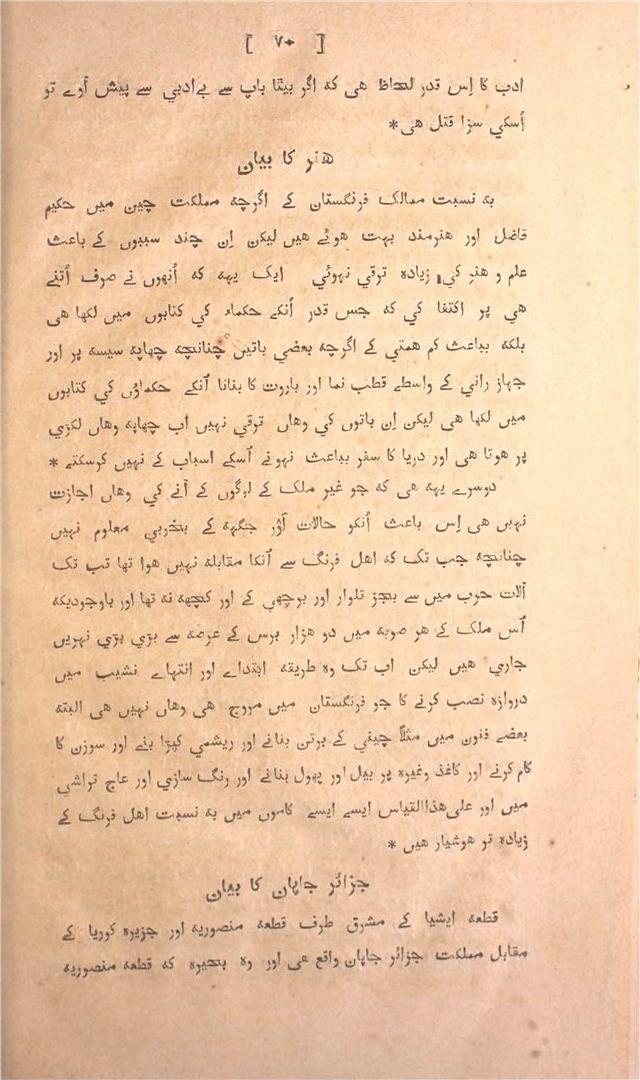 [ ۷۰ ]
ادب کا اِس قدر لحاظ هی که اگر بیٹا باپ سے بےادبي سے پیش آوے تو
اُسکي سزا قتل هی *
هنر کا بیان
به نسبت ممالک فرنگستان کے اگرچه مملکت چین میں حکیم
فاضل اور هنرمند بہت هوئے هیں لیکن اِن چند سببوں کے باعث
علم و هنر کي زیاده ترقي نہوئي ایک یہه که اُنهوں نے صرف اُتنے
هی پر اکتفا کي که جس قدر اُنکے حکماء کي کتابوں میں لکها هی
بلکه بباعث کم همتي کے اگرچه بعضي باتیں چنانچه چهاپه سیسه پر اور
جہاز راني کے واسطے قطب نما اور باروت کا بنانا اُنکے حکماؤں کي کتابوں
میں لکها هی لیکن اِن باتوں کي وهاں ترقي نہیں اب چهاپه وهاں لکڑي
پر هوتا هی اور دریا کا سفر بباعث نہونے اُسکے اسباب کے نہیں کرسکتے *
دوسرے یہه هی که جو غیر ملک کے لوگوں کے آنے کي وهاں اجازت
نہیں هی اِس باعث اُنکو حالات اَوْر جگہه کے بخوبي معلوم نہیں
چنانچه جب تک که اهل فرنگ سے اُنکا مقابله نہیں هوا تها تب تک
آلات حرب میں سے بجز تلوار اور برچهي کے اور کچهه نه تها اور باوجودیکه
اُس ملک کے هر صوبه میں دو هزار برس کے عرصه سے بڑي بڑي نہریں
جاري هیں لیکن اب تک وه طریقه ابتداے اور انتهاے نشیب میں
دروازه نصب کرنے کا جو فرنگستان میں مروج هی وهاں نہیں هی البته
بعضے فنون میں مثلاً چیني کے برتن بنانے اور ریشمي کپڑا بنے اور سوزن کا
کام کرنے اور کاغذ وغیره پر بیل اور پهول بنانے اور رنگ سازي اور عاج تراشي
میں اور علی هذاالقیاس ایسے ایسے کاموں میں به نسبت اهل فرنگ کے
زیاده تر هوشیار هیں *
جزائر جاپان کا بیان
قطعه ایشیا کے مشرق طرف قطعه منصوریه اور جزیره کوریا کے
مقابل مملکت جزائر جاپان واقع هی اور وه بحیره که قطعه منصوریه